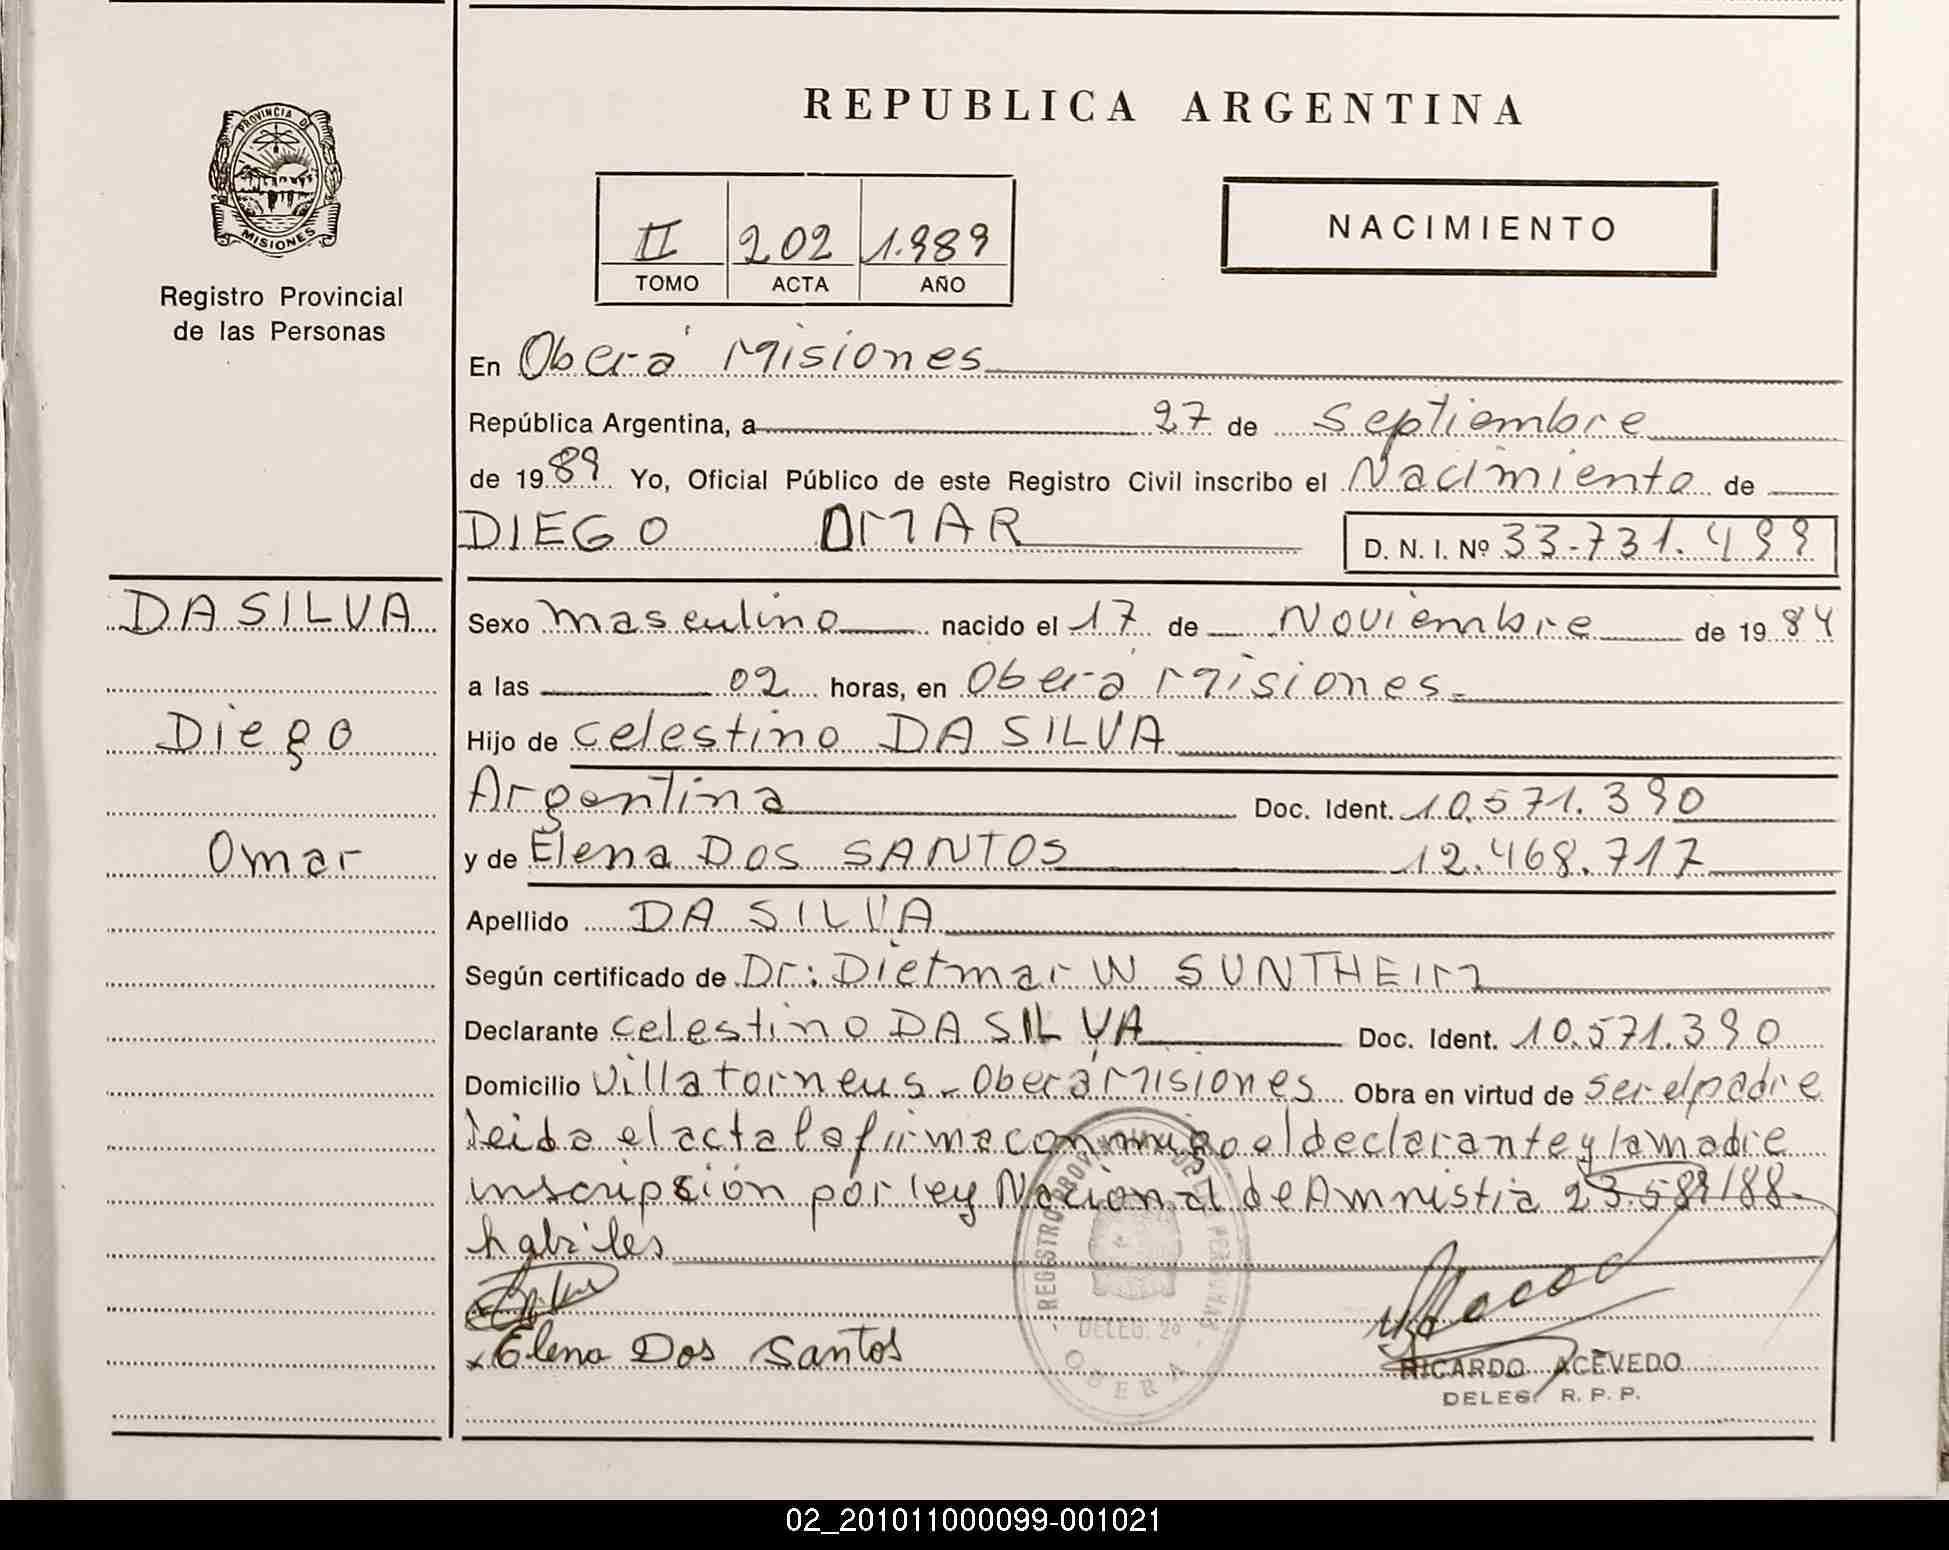 REPUBLICA ARGENTINA
PROVINCIA D
MISIONES
Registro Provincial
de las Personas
II 202 1.989
TOMO ACTA AÑO
NACIMIENTO
En Oberá Misiones
República Argentina, a 27 de Septiembre
de 1989 Yo, Oficial Público de este Registro Civil inscribo el Nacimiento de
DIEGO OMAR D. N. I. Nº 33.731.499
DA SILVA
Diego
Omar
Sexo masculino nacido el 17 de Noviembre de 1984
a las 02 horas, en Oberá Misiones.
Hijo de Celestino DA SILVA
Argentina Doc. Ident. 10.571.390
y de Elena DOS SANTOS 12.468.717
Apellido DA SILVA
Según certificado de Dr: Dietmar W SUNTHEIM
Declarante Celestino DA SILVA Doc. Ident. 10.571.390
Domicilio Villa torneus - Oberá Misiones Obra en virtud de ser el padre
leida el acta la firma conmigo el declarante y la madre
inscripción por ley Nacional de Amnistia 23.589/88.
habiles
x Elena Dos Santos
REGISTRO PROVINCIAL DE LAS PERSONAS
DELEG. 2º
OBERA
RICARDO ACEVEDO
DELEG. R. P. P.
02_201011000099-001021